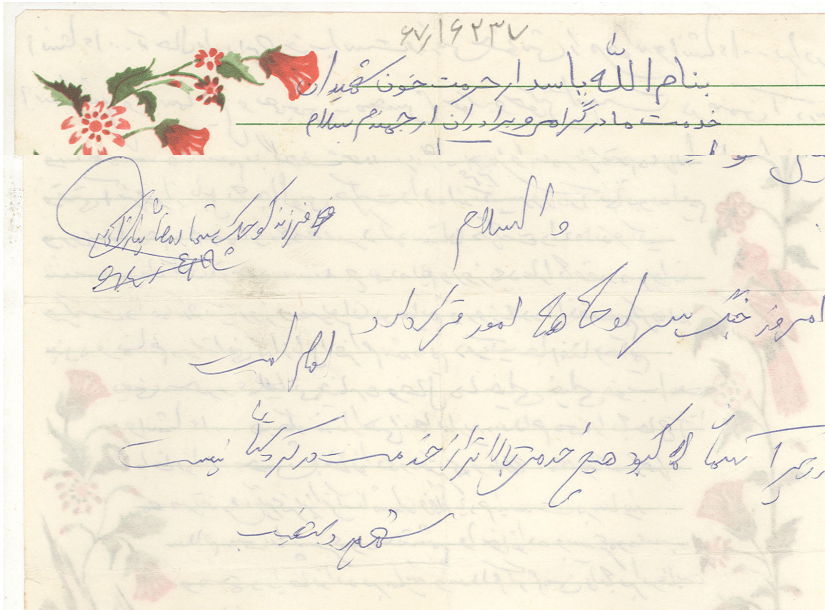 ۶۷/۱۶۲۳۷
بنام الله پاسدار حرمت خون شهیدان
خدمت مادر گرامی و برادران ارجمندم سلام
والسلام
فرزند کوچک شما رمضان
امروز جنگ سر لوحه امور قرار دارد
امام امت
زیر آسمان کبود هیچ خدمتی بالاتر از خدمت در کردستان نیست
شهید